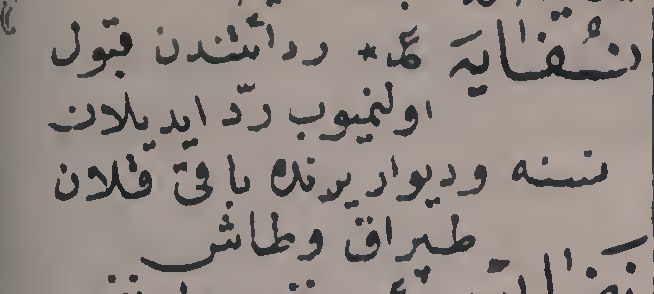 نُفَايَه عَ * ردائتندن قبول
اولنميوب ردّ ايديلان
نسنه وديوار يرنده باقى قلان
طپراق وطاش